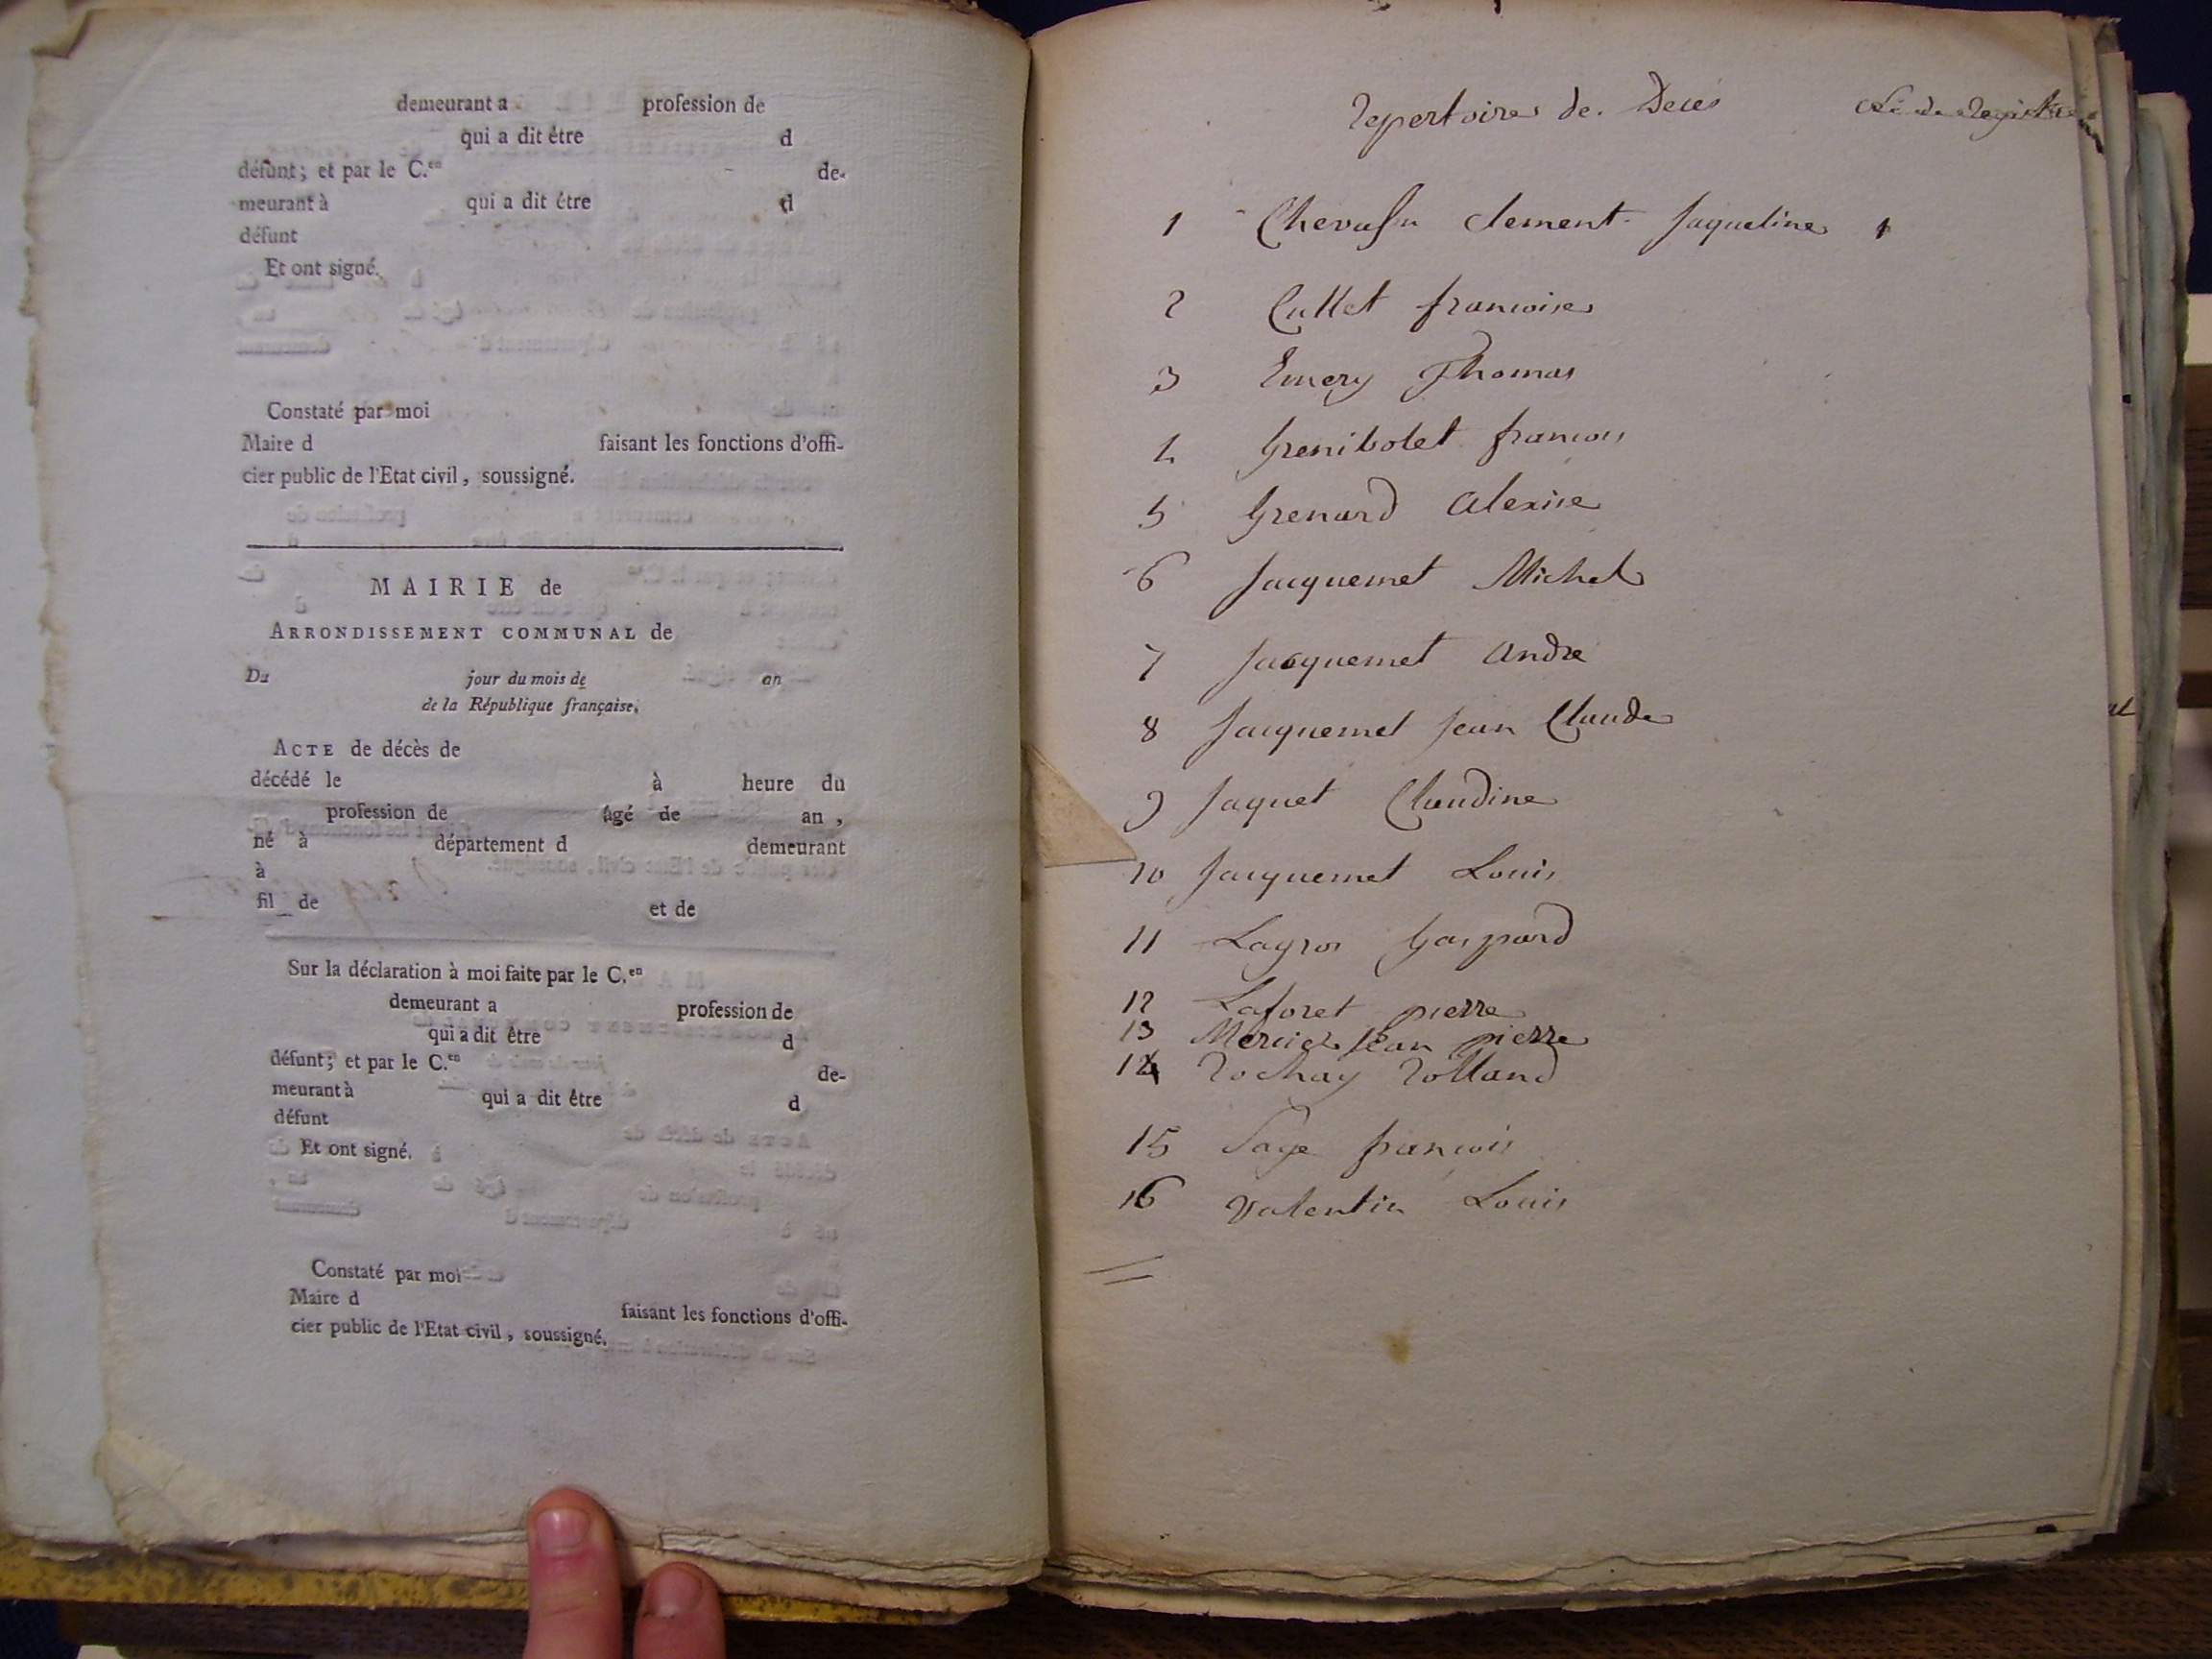 demeurant a profession de
qui a dit être d
défunt; et par le C.en de-
meurant à qui a dit être d
défunt
Et ont signé.
Constaté par moi
Maire d faisant les fonctions d'offi-
cier public de l'Etat civil, soussigné.
MAIRIE de
ARRONDISSEMENT COMMUNAL de
Du jour du mois de an
de la République française.
ACTE de décès de
décédé le à heure du
profession de âgé de an,
né à département d demeurant
à
fil_ de et de
Sur la déclaration à moi faite par le C.en
demeurant a profession de
qui a dit être d
défunt; et par le C.en de-
meurant à qui a dit être d
défunt
Et ont signé.
Constaté par moi
Maire d faisant les fonctions d'offi-
cier public de l'Etat civil, soussigné.
Repertoire de Deces
1 clement Jaqueline 1
2 Cullet francoise
3 Emery Thomas
4 Grenibolet francois
5 Grenard Alexise
6 Jacquemet Michel
7 Jacquemet Andre
8 Jacquemet Jean Claude
9 Jaquet Claudine
10 Jacquemet Louis
11 Lagros Gaspard
12 Laforet pierre
13 Mercier Jean pierre
14 Rochay Rolland
15 Sage francois
16 Valentin Louis